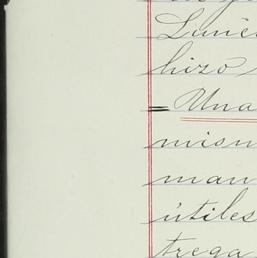 hizo
= Una
mism
man
útiles
trega